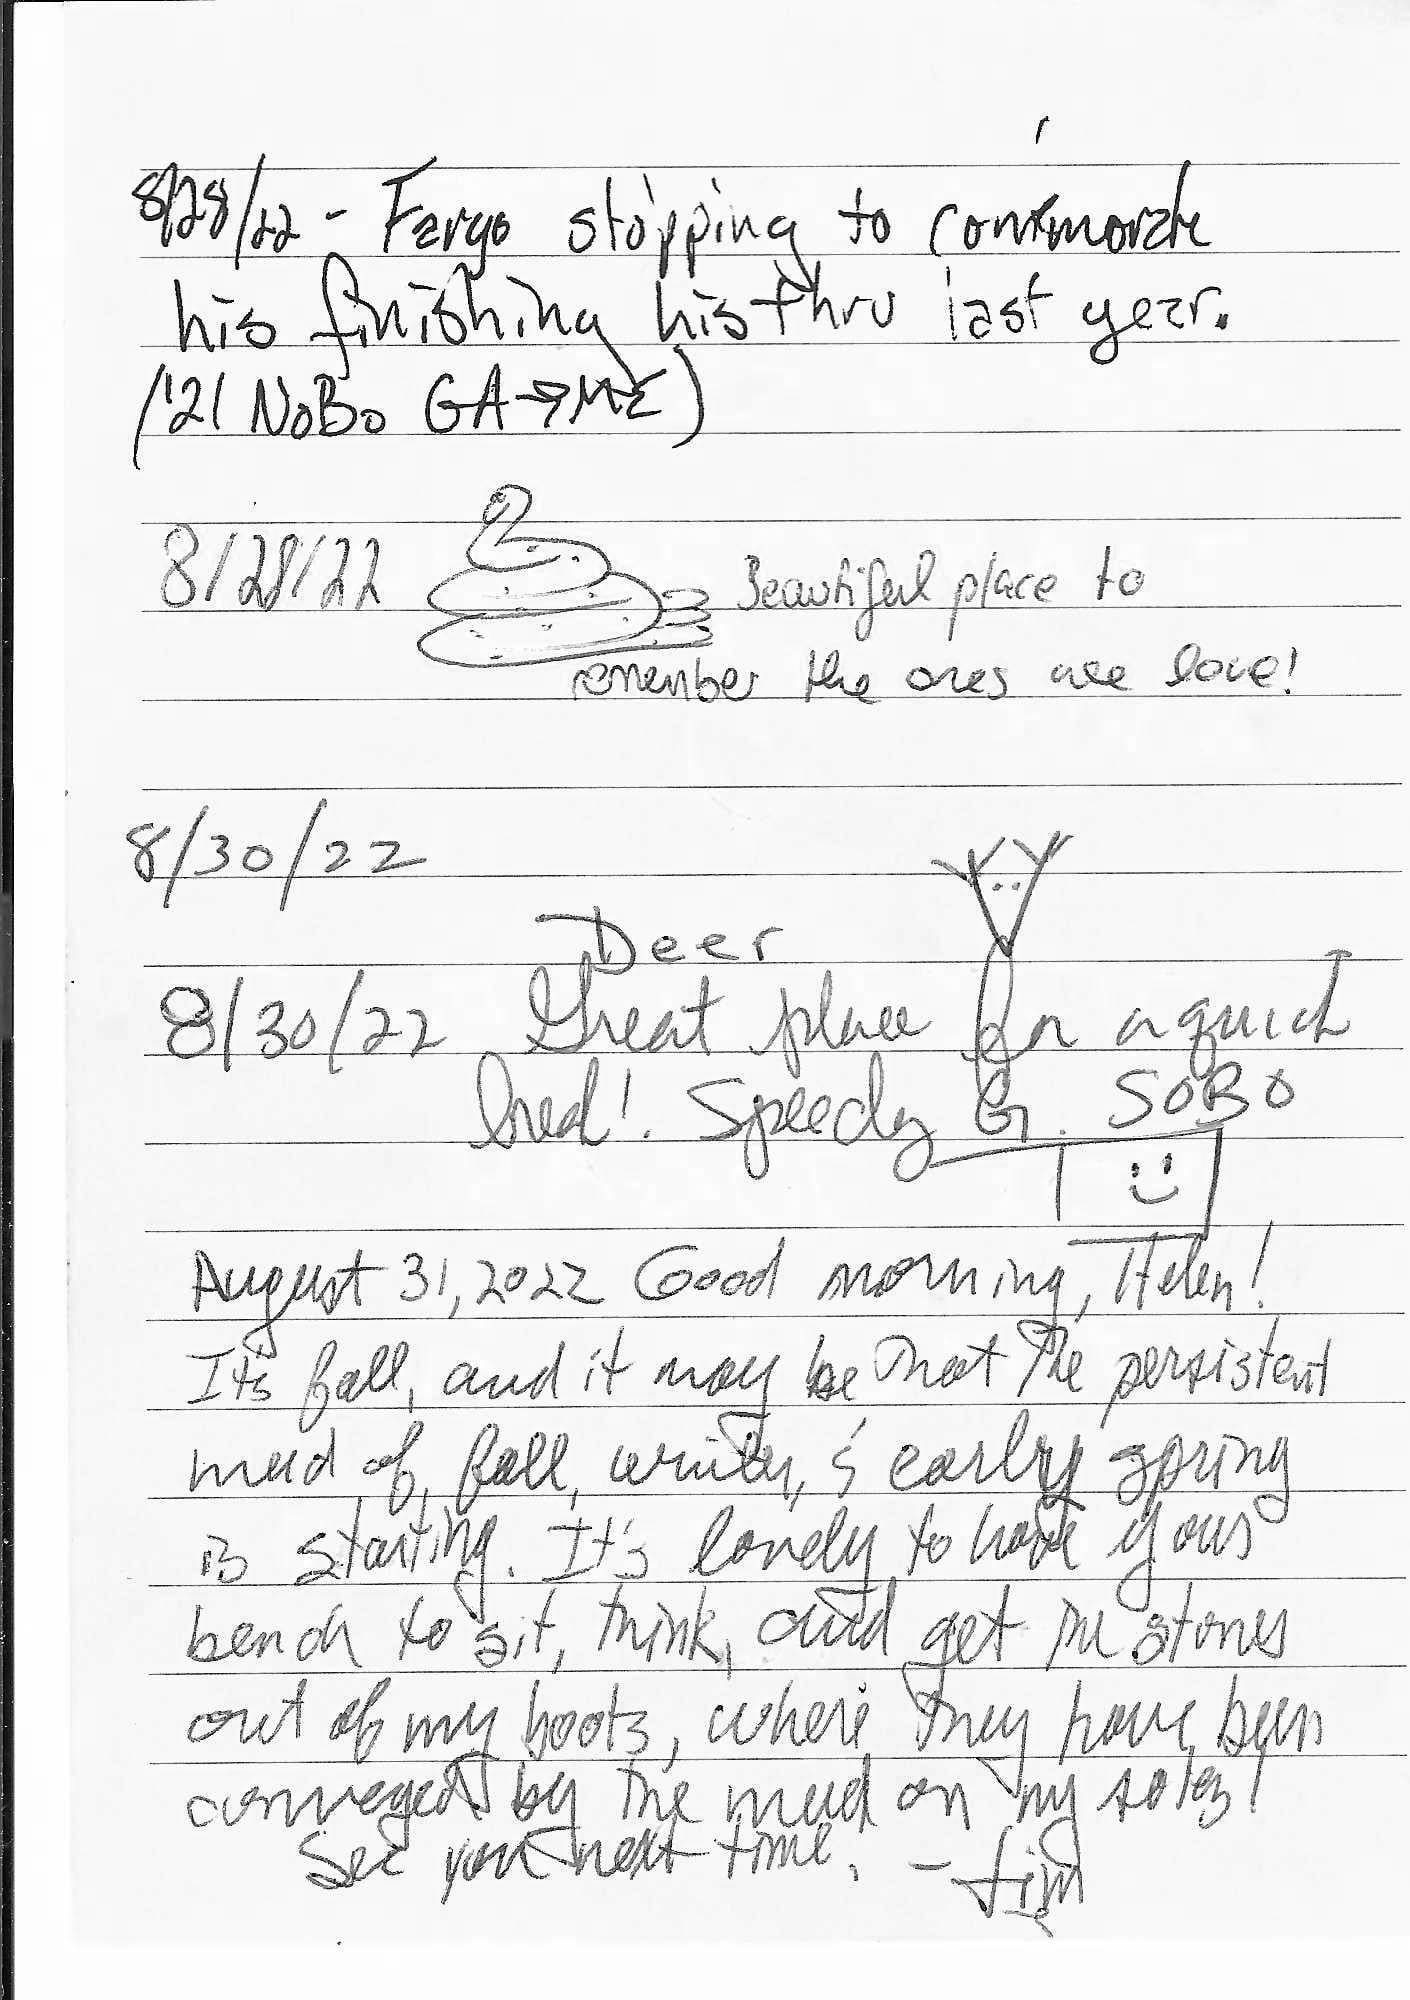 8/28/22 - Fargo stopping to commorate
his finishing his thru last year.
('21 NoBo GA→ME)
8/28/22 Beautiful place to
remember the ones we love!
8/30/22
Deer
8/30/22 Great place for a quick
! Speedy G. SOBO
August 31, 2022 Good morning, Helen!
It's fall, and it may be that the persistent
mud of fall, winter, & early spring
is starting. It's lovely to have your
bench to sit, think, and get the stones
out of my boots, where they have been
conveyed by the mud on my soles!
See you next time. - Jim